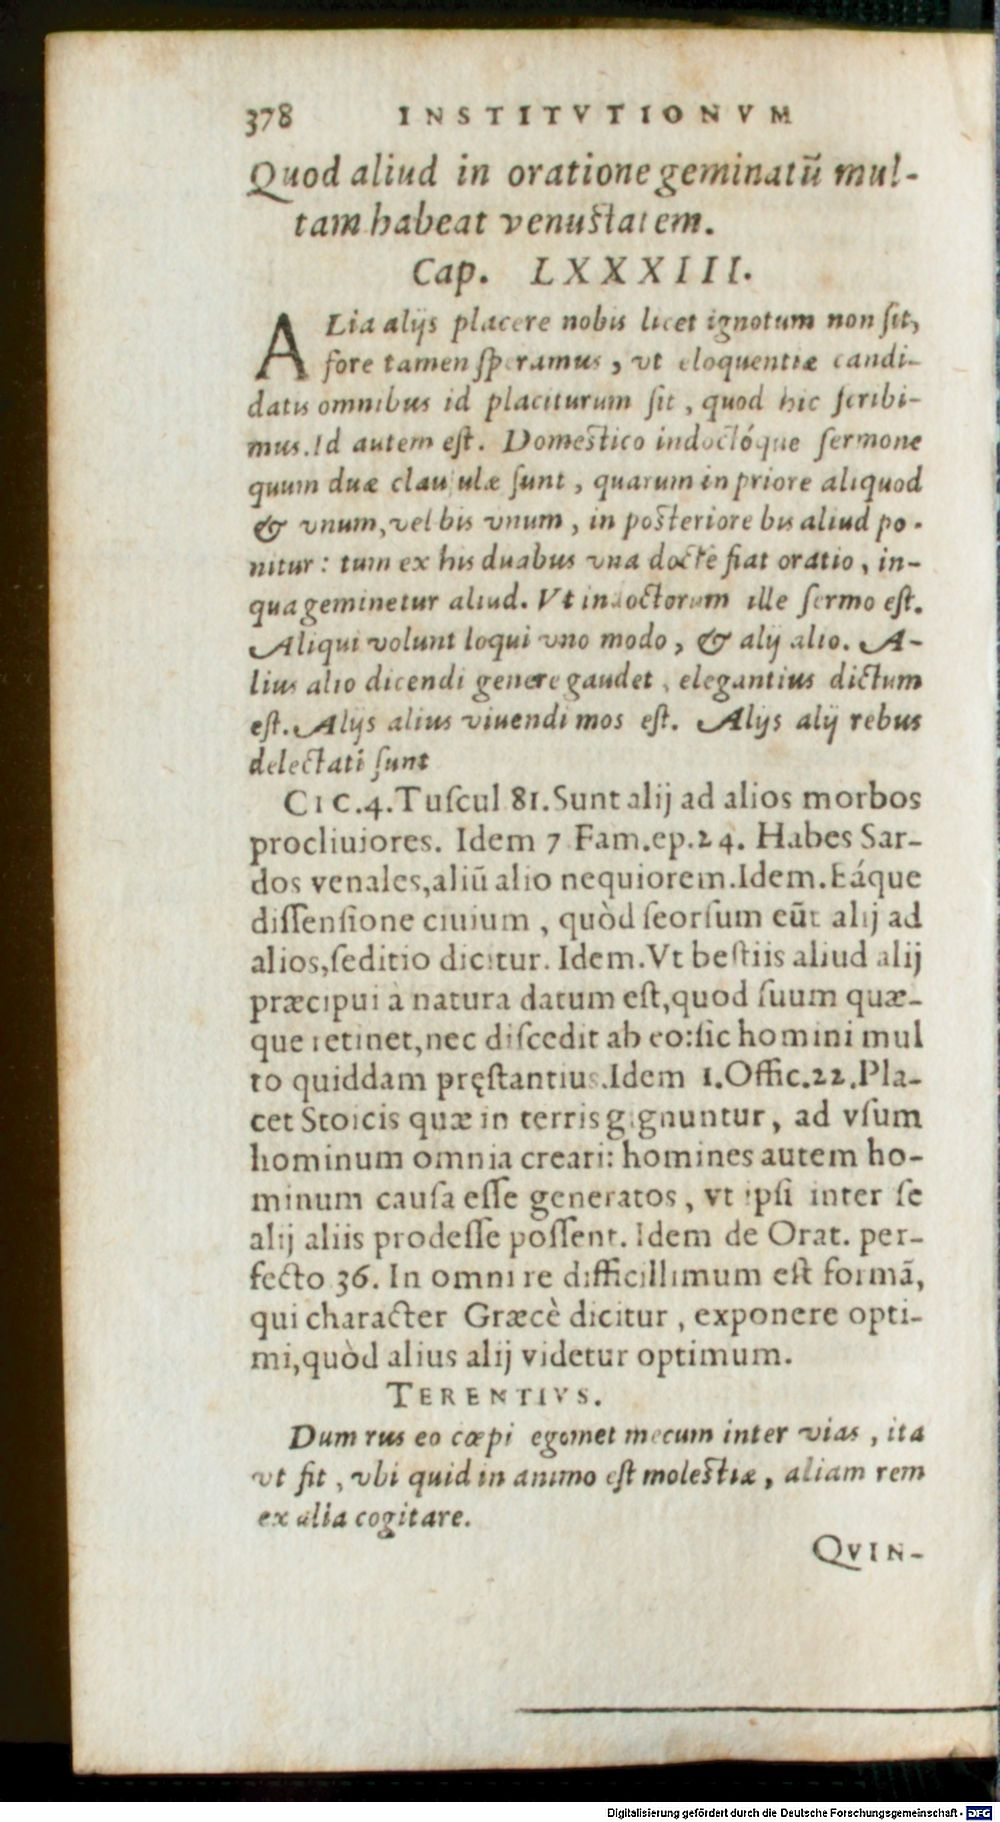 378 INSTITVTIONVM
Quod aliud in oratione geminatũ mul-
tam habeat venustatem.
Cap. LXXXIII.
ALia alijs placere nobis licet ignotum non sit,
fore tamen speramus, vt eloquentiæ candi-
datis omnibus id placiturum sit, quod hic scribi-
mus. Id autem est. Domestico indoctóque sermone
quum duæ clausulæ sunt, quarum in priore aliquod
& vnum, vel bis vnum, in posteriore bis aliud po-
nitur: tum ex his duabus vna docte fiat oratio, in-
qua geminetur aliud. Vt indoctorum ille sermo est.
Aliqui volunt loqui vno modo, & alij alio. A-
lius alio dicendi genere gaudet, elegantius dictum
est. Alijs alius viuendi mos est. Alijs alij rebus
delectati sunt
CIC.4.Tuscul 81. Sunt alij ad alios morbos
procliuiores. Idem 7 Fam.ep.24. Habes Sar-
dos venales, aliũ alio nequiorem. Idem. Eáque
dissensione ciuium, quòd seorsum eũt alij ad
alios, seditio dicitur. Idem. Vt bestiis aliud alij
præcipui à natura datum est, quod suum quæ-
que retinet, nec discedit ab eo: sic homini mul
to quiddam pręstantius. Idem 1. Offic. 22. Pla-
cet Stoicis quæ in terris gignuntur, ad vsum
hominum omnia creari: homines autem ho-
minum causa esse generatos, vt ipsi inter se
alij aliis prodesse possent. Idem de Orat. per-
fecto 36. In omni re difficillimum est formã,
qui character Græcè dicitur, exponere opti-
mi, quòd alius alij videtur optimum.
TERENTIVS.
Dum rus eo cœpi egomet mecum inter vias, ita
vt fit, vbi quid in animo est molestiæ, aliam rem
ex alia cogitare.
QVIN-
Digitalisierung gefördert durch die Deutsche Forschungsgemeinschaft - DFG